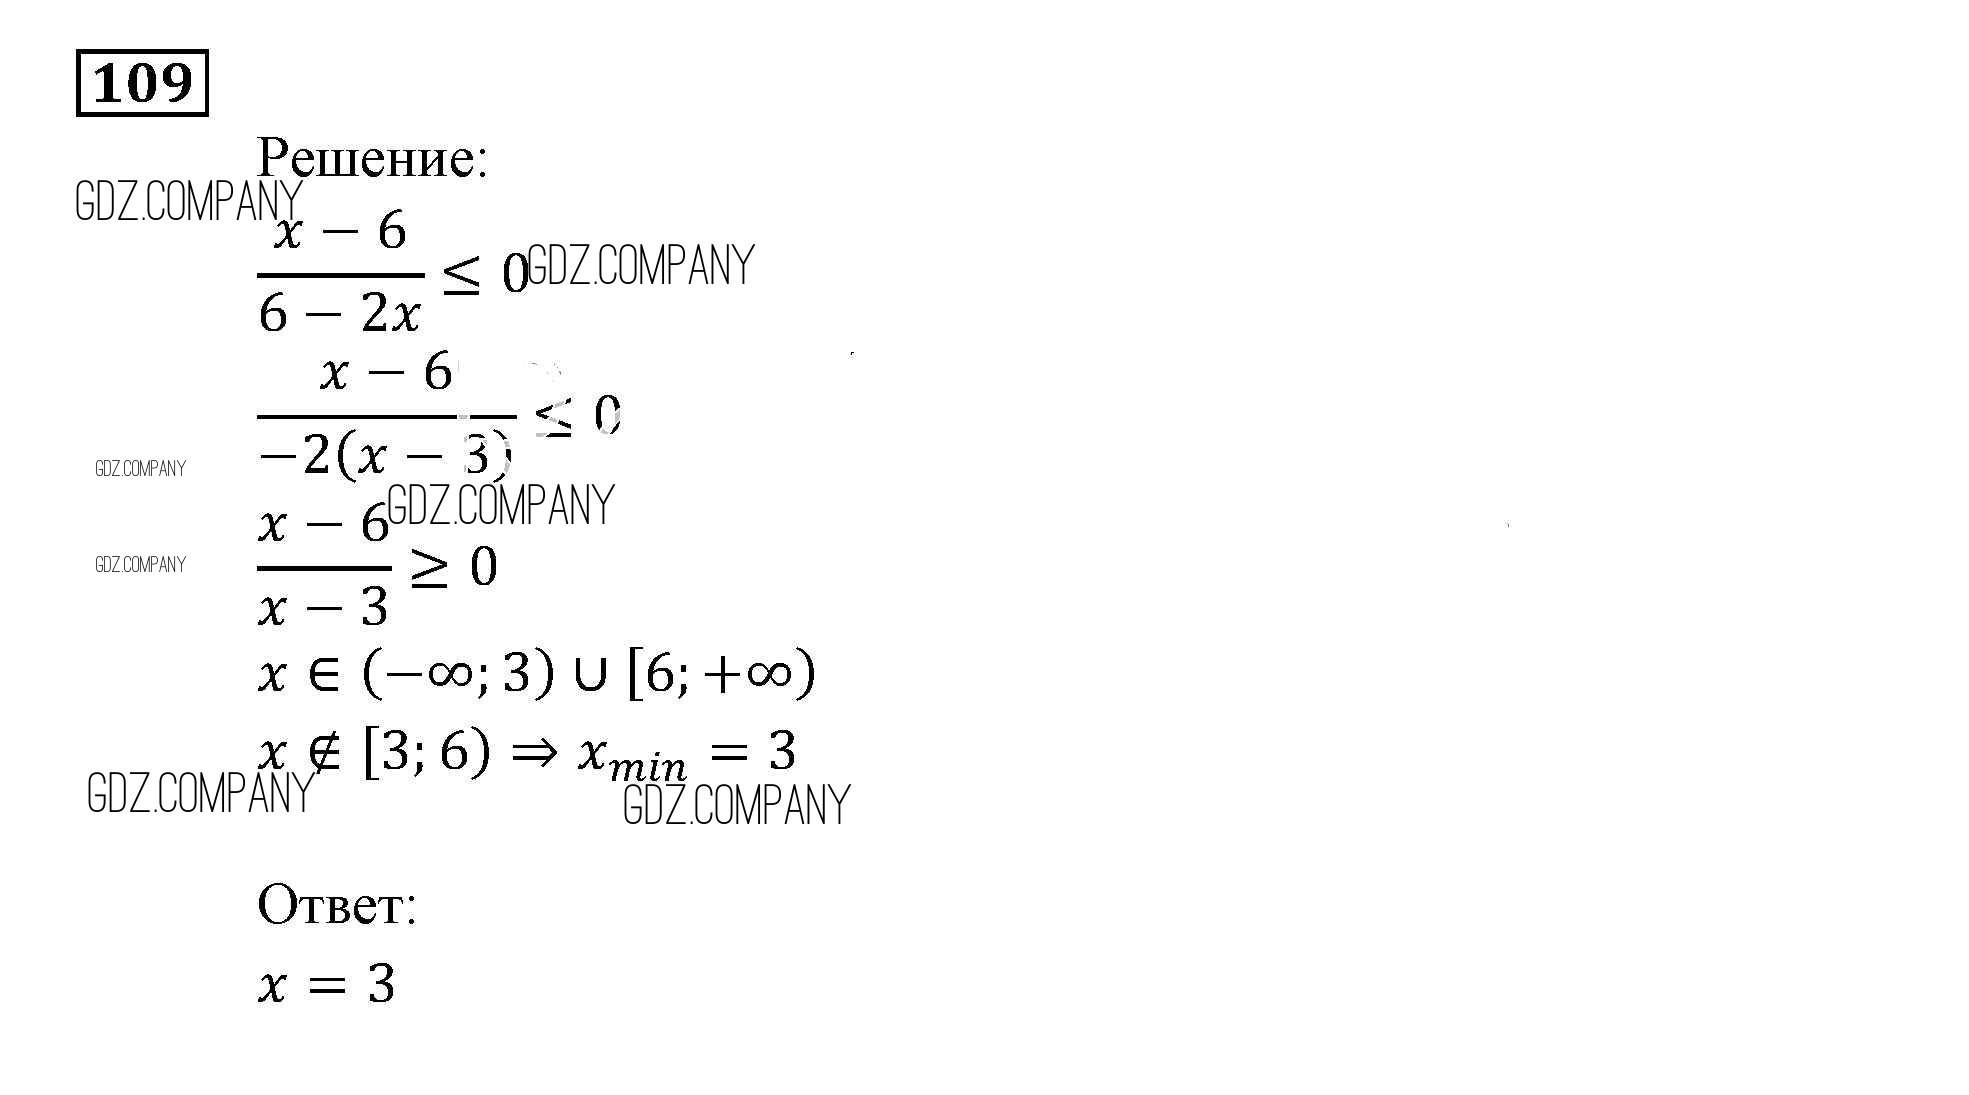 109
Решение:
GDZ.COMPANY
x − 6
6 − 2x
≤ 0
GDZ.COMPANY
x − 6
−2(x − 3)
≤ 0
GDZ.COMPANY
GDZ.COMPANY
x − 6
x − 3
≥ 0
GDZ.COMPANY
x ∈ (−∞; 3) ∪ [6; +∞)
x ∉ [3; 6) ⇒ xmin = 3
GDZ.COMPANY
GDZ.COMPANY
Ответ:
x = 3